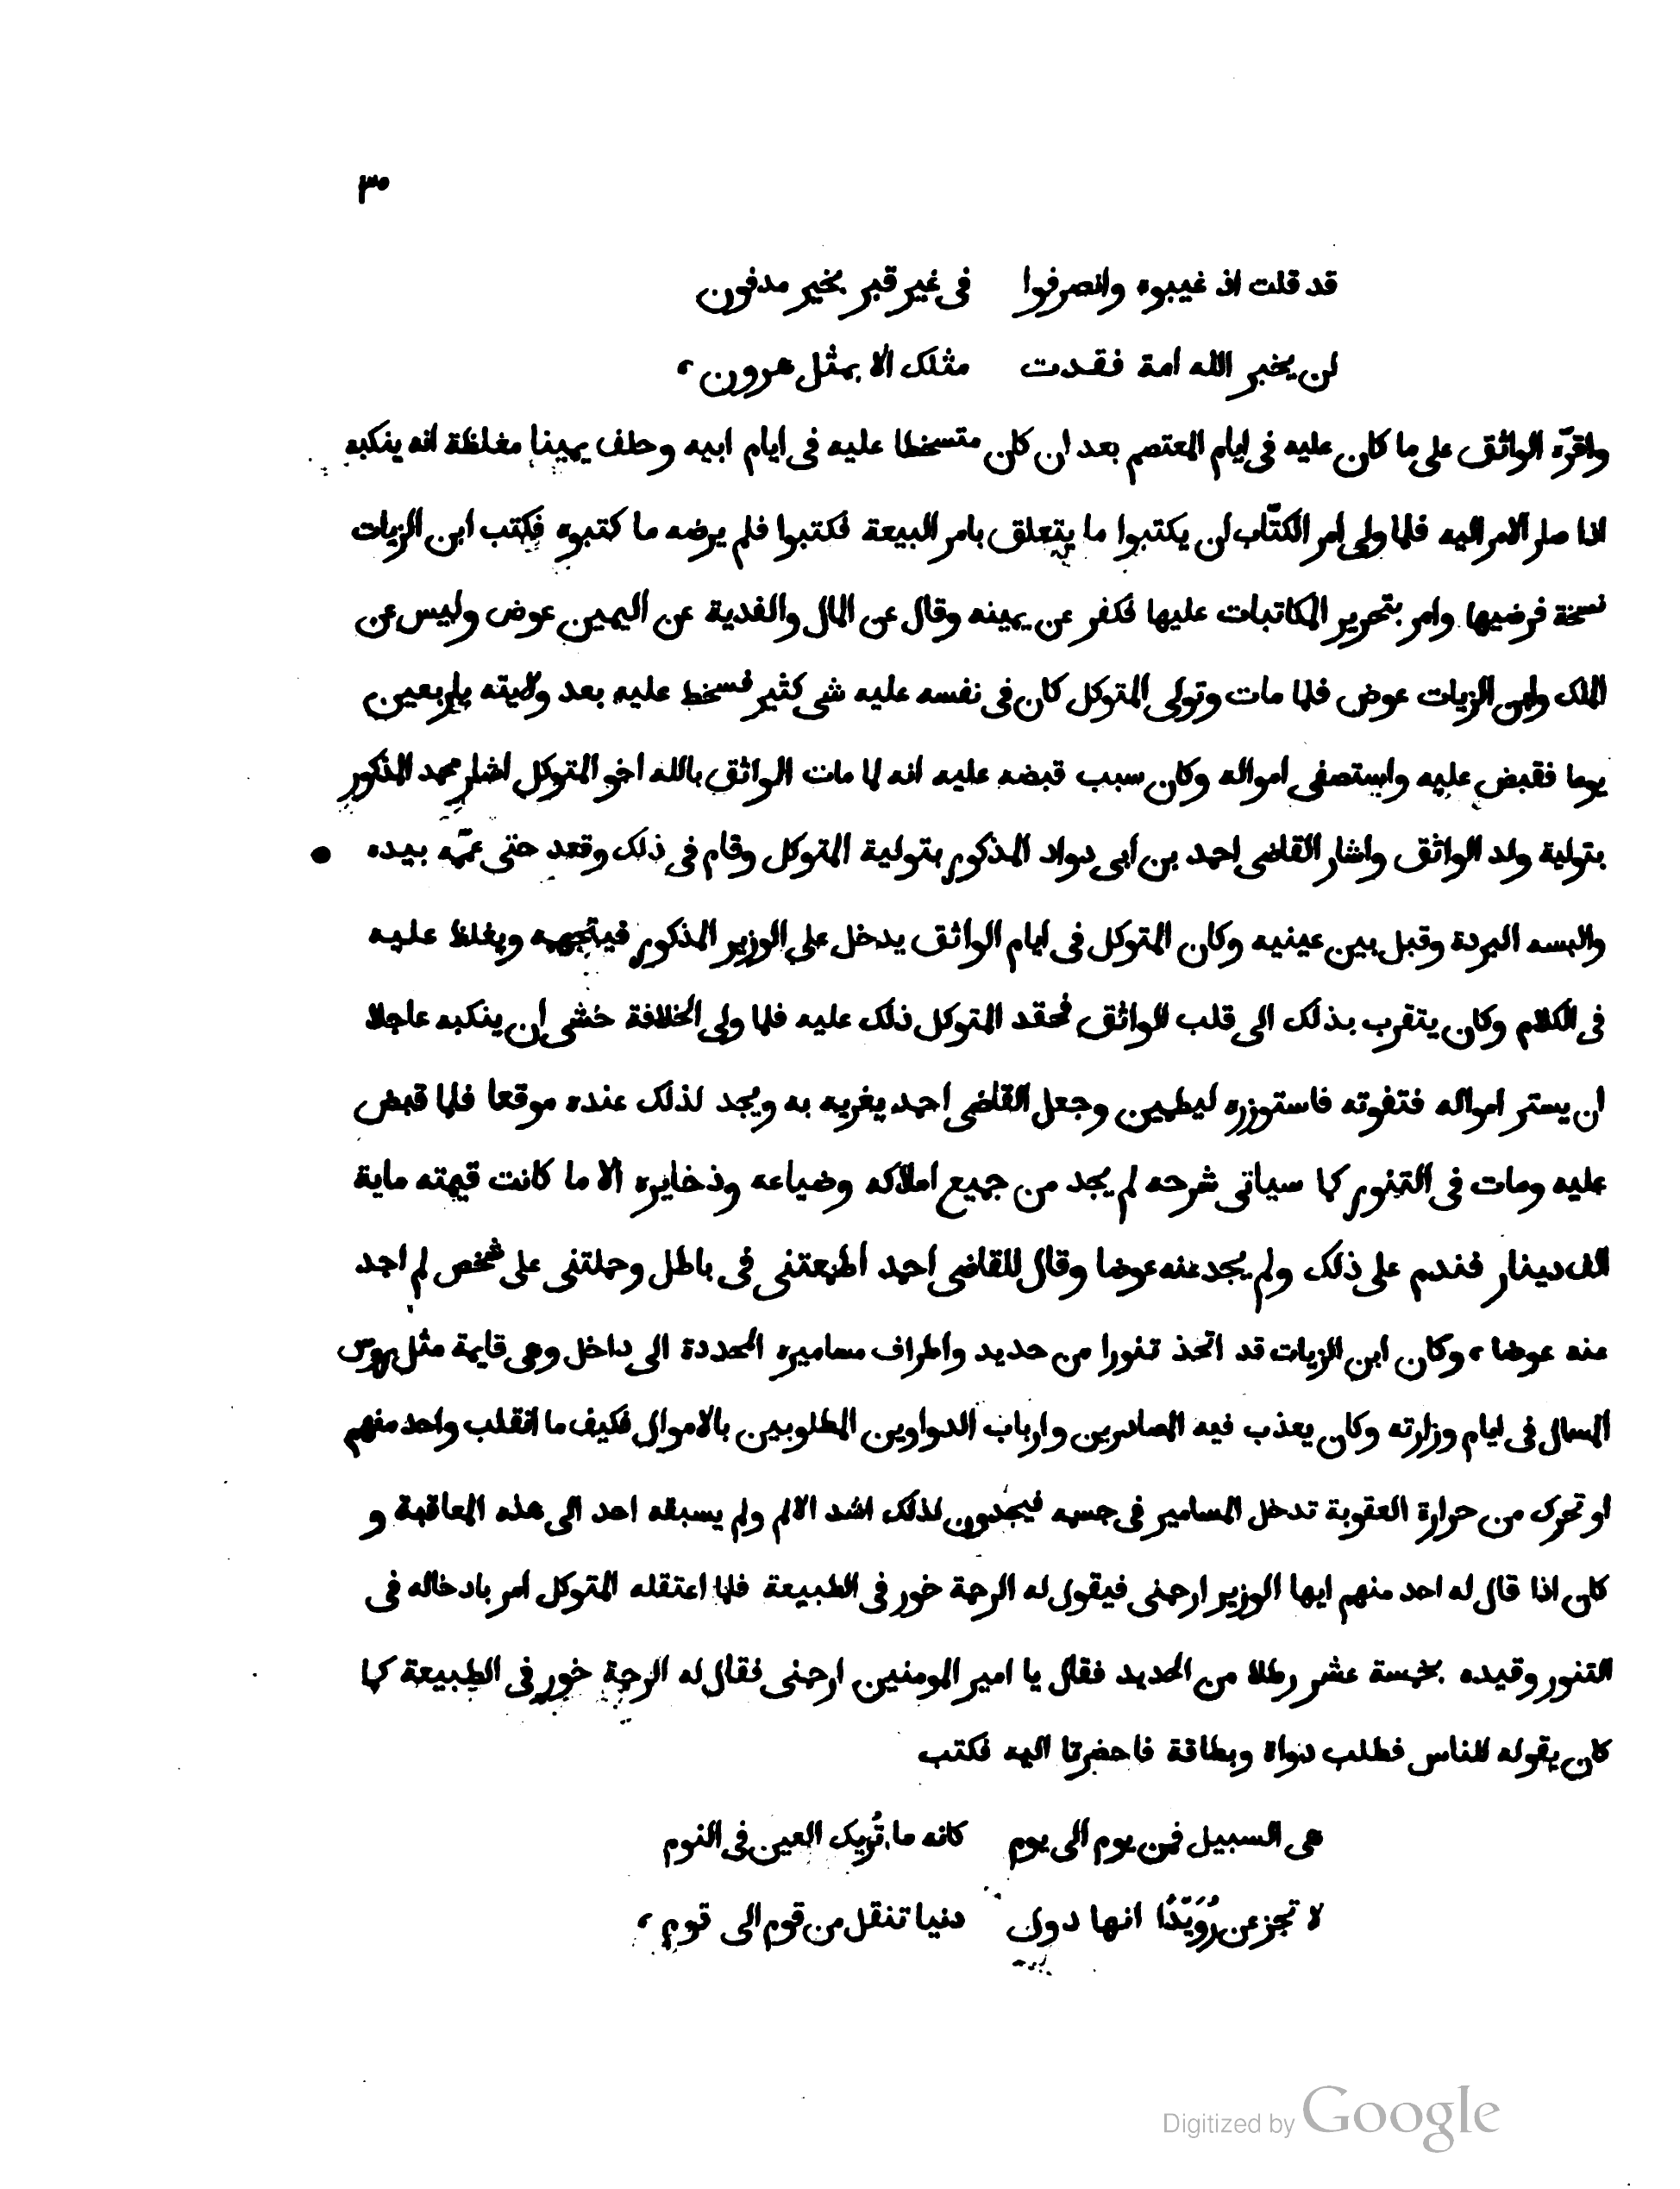 ٣٠
قد قلت اذ غيبوه وانصرفوا في غير قبر بخير مدفون
لن يخبر الله امة فقدت مثلك الا بمثل هرون،
واقرّه الواثق على ما كان عليه في ايام المعتصم بعد ان كان متسخطا عليه في ايام ابيه وحلف يمينا مغلظة انه ينكبه
اذا صار الامر اليه فلما ولى امر الكتّاب ان يكتبوا ما يتعلق بامر البيعة فكتبوا فلم يرضه ما كتبوه فكتب ابن الزيات
نسخة فرضيها وامر بتحرير المكاتبات عليها فكفر عن يمينه وقال عن المال والفدية عن اليمين عوض وليس عن
الملك وابن الزيات عوض فلما مات وتولى المتوكل كان في نفسه عليه شي كثير فسخط عليه بعد ولايته باربعين
يوما فقبض عليه واستصفى امواله وكان سبب قبضه عليه انه لما مات الواثق بالله اخو المتوكل اشار محمد المذكور
بتولية ولد الواثق واشار القاضي احمد بن ابي دواد المذكور بتولية المتوكل وقام في ذلك وقعد حتى عمّه بيده
والبسه البردة وقبل بين عينيه وكان المتوكل في ايام الواثق يدخل على الوزير المذكور فيتجهمه ويغلظ عليه
في الكلام وكان يتقرب بذلك الى قلب الواثق فحقد المتوكل ذلك عليه فلما ولى الخلافة خشى ان ينكبه عاجلا
ان يستر امواله فتفوته فاستوزره ليطمين وجعل القاضي احمد يغريه به ويجد لذلك عنده موقعا فلما قبض
عليه ومات في التنور كما سياتي شرحه لم يجد من جميع املاكه وضياعه وذخايره الا ما كانت قيمته ماية
الف دينار فندم على ذلك ولم يجد عنه عوضا وقال للقاضي احمد اطمعتني في باطل وحملتني على شخص لم اجد
عنه عوضا، وكان ابن الزيات قد اتخذ تنورا من حديد واطراف مساميره المحددة الى داخل وهي قايمة مثل روس
المسال في ايام وزارته وكان يعذب فيه المصادرين وارباب الدواوين المطلوبين بالاموال فكيف ما انقلب واحد منهم
او تحرك من حرارة العقوبة تدخل المسامير في جسمه فيجدون لذلك اشد الالم ولم يسبقه احد الى هذه المعاقبة و
كان اذا قال له احد منهم ايها الوزير ارحمني فيقول له الرحمة خور في الطبيعة فلما اعتقله المتوكل امر بادخاله في
التنور وقيده بخمسة عشر رطلا من الحديد فقال يا امير المومنين ارحمني فقال له الرحمة خور في الطبيعة كما
كان يقوله للناس فطلب دواة وبطاقة فاحضرتا اليه فكتب
هي السبيل فمن يوم الى يوم كانه ما تُريك العين في النوم
لا تجزعن رُوَيْدًا انها دول دنيا تنقل من قوم الى قوم،
Digitized by Google